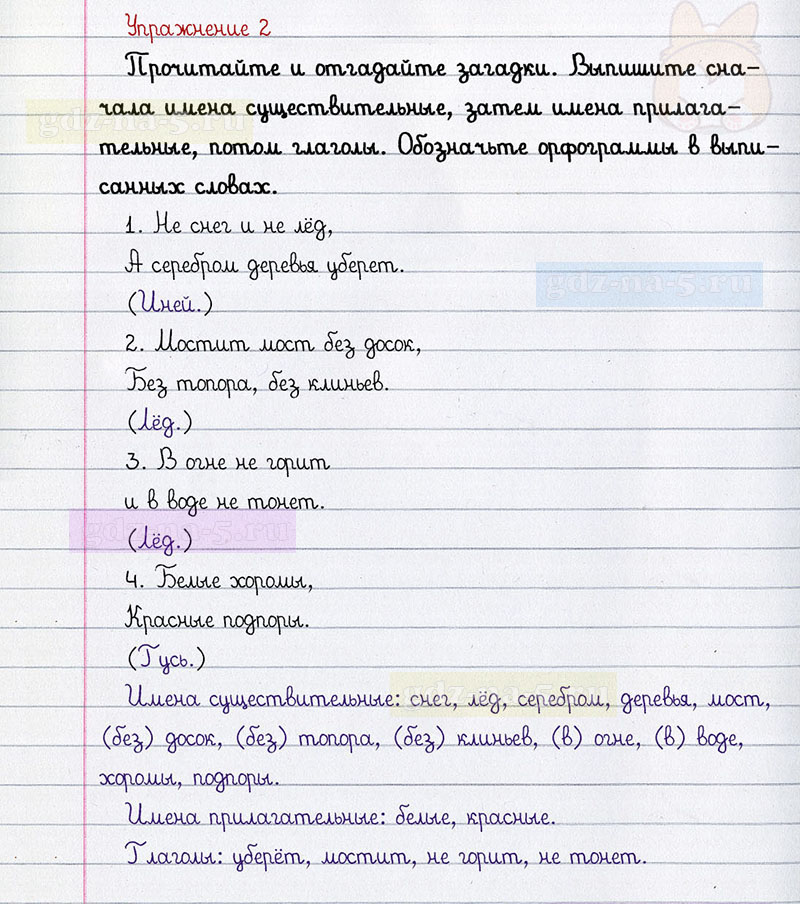 Упражнение 2
Прочитайте и отгадайте загадки. Выпишите сна-
чала имена существительные, затем имена прилага-
тельные, потом глаголы. Обозначьте орфограммы в выпи-
санных словах.
1. Не снег и не лёд,
А серебром деревья уберет.
(Иней.)
2. Мостит мост без досок,
Без топора, без клиньев.
(Лёд.)
3. В огне не горит
и в воде не тонет.
(Лёд.)
4. Белые хоромы,
Красные подпоры.
(Гусь.)
Имена существительные: снег, лёд, серебром, деревья, мост,
(без) досок, (без) топора, (без) клиньев, (в) огне, (в) воде,
хоромы, подпоры.
Имена прилагательные: белые, красные.
Глаголы: уберёт, мостит, не горит, не тонет.
gdz-na-5.ru
gdz-na-5.ru
gdz-na-5.ru
gdz-na-5.ru